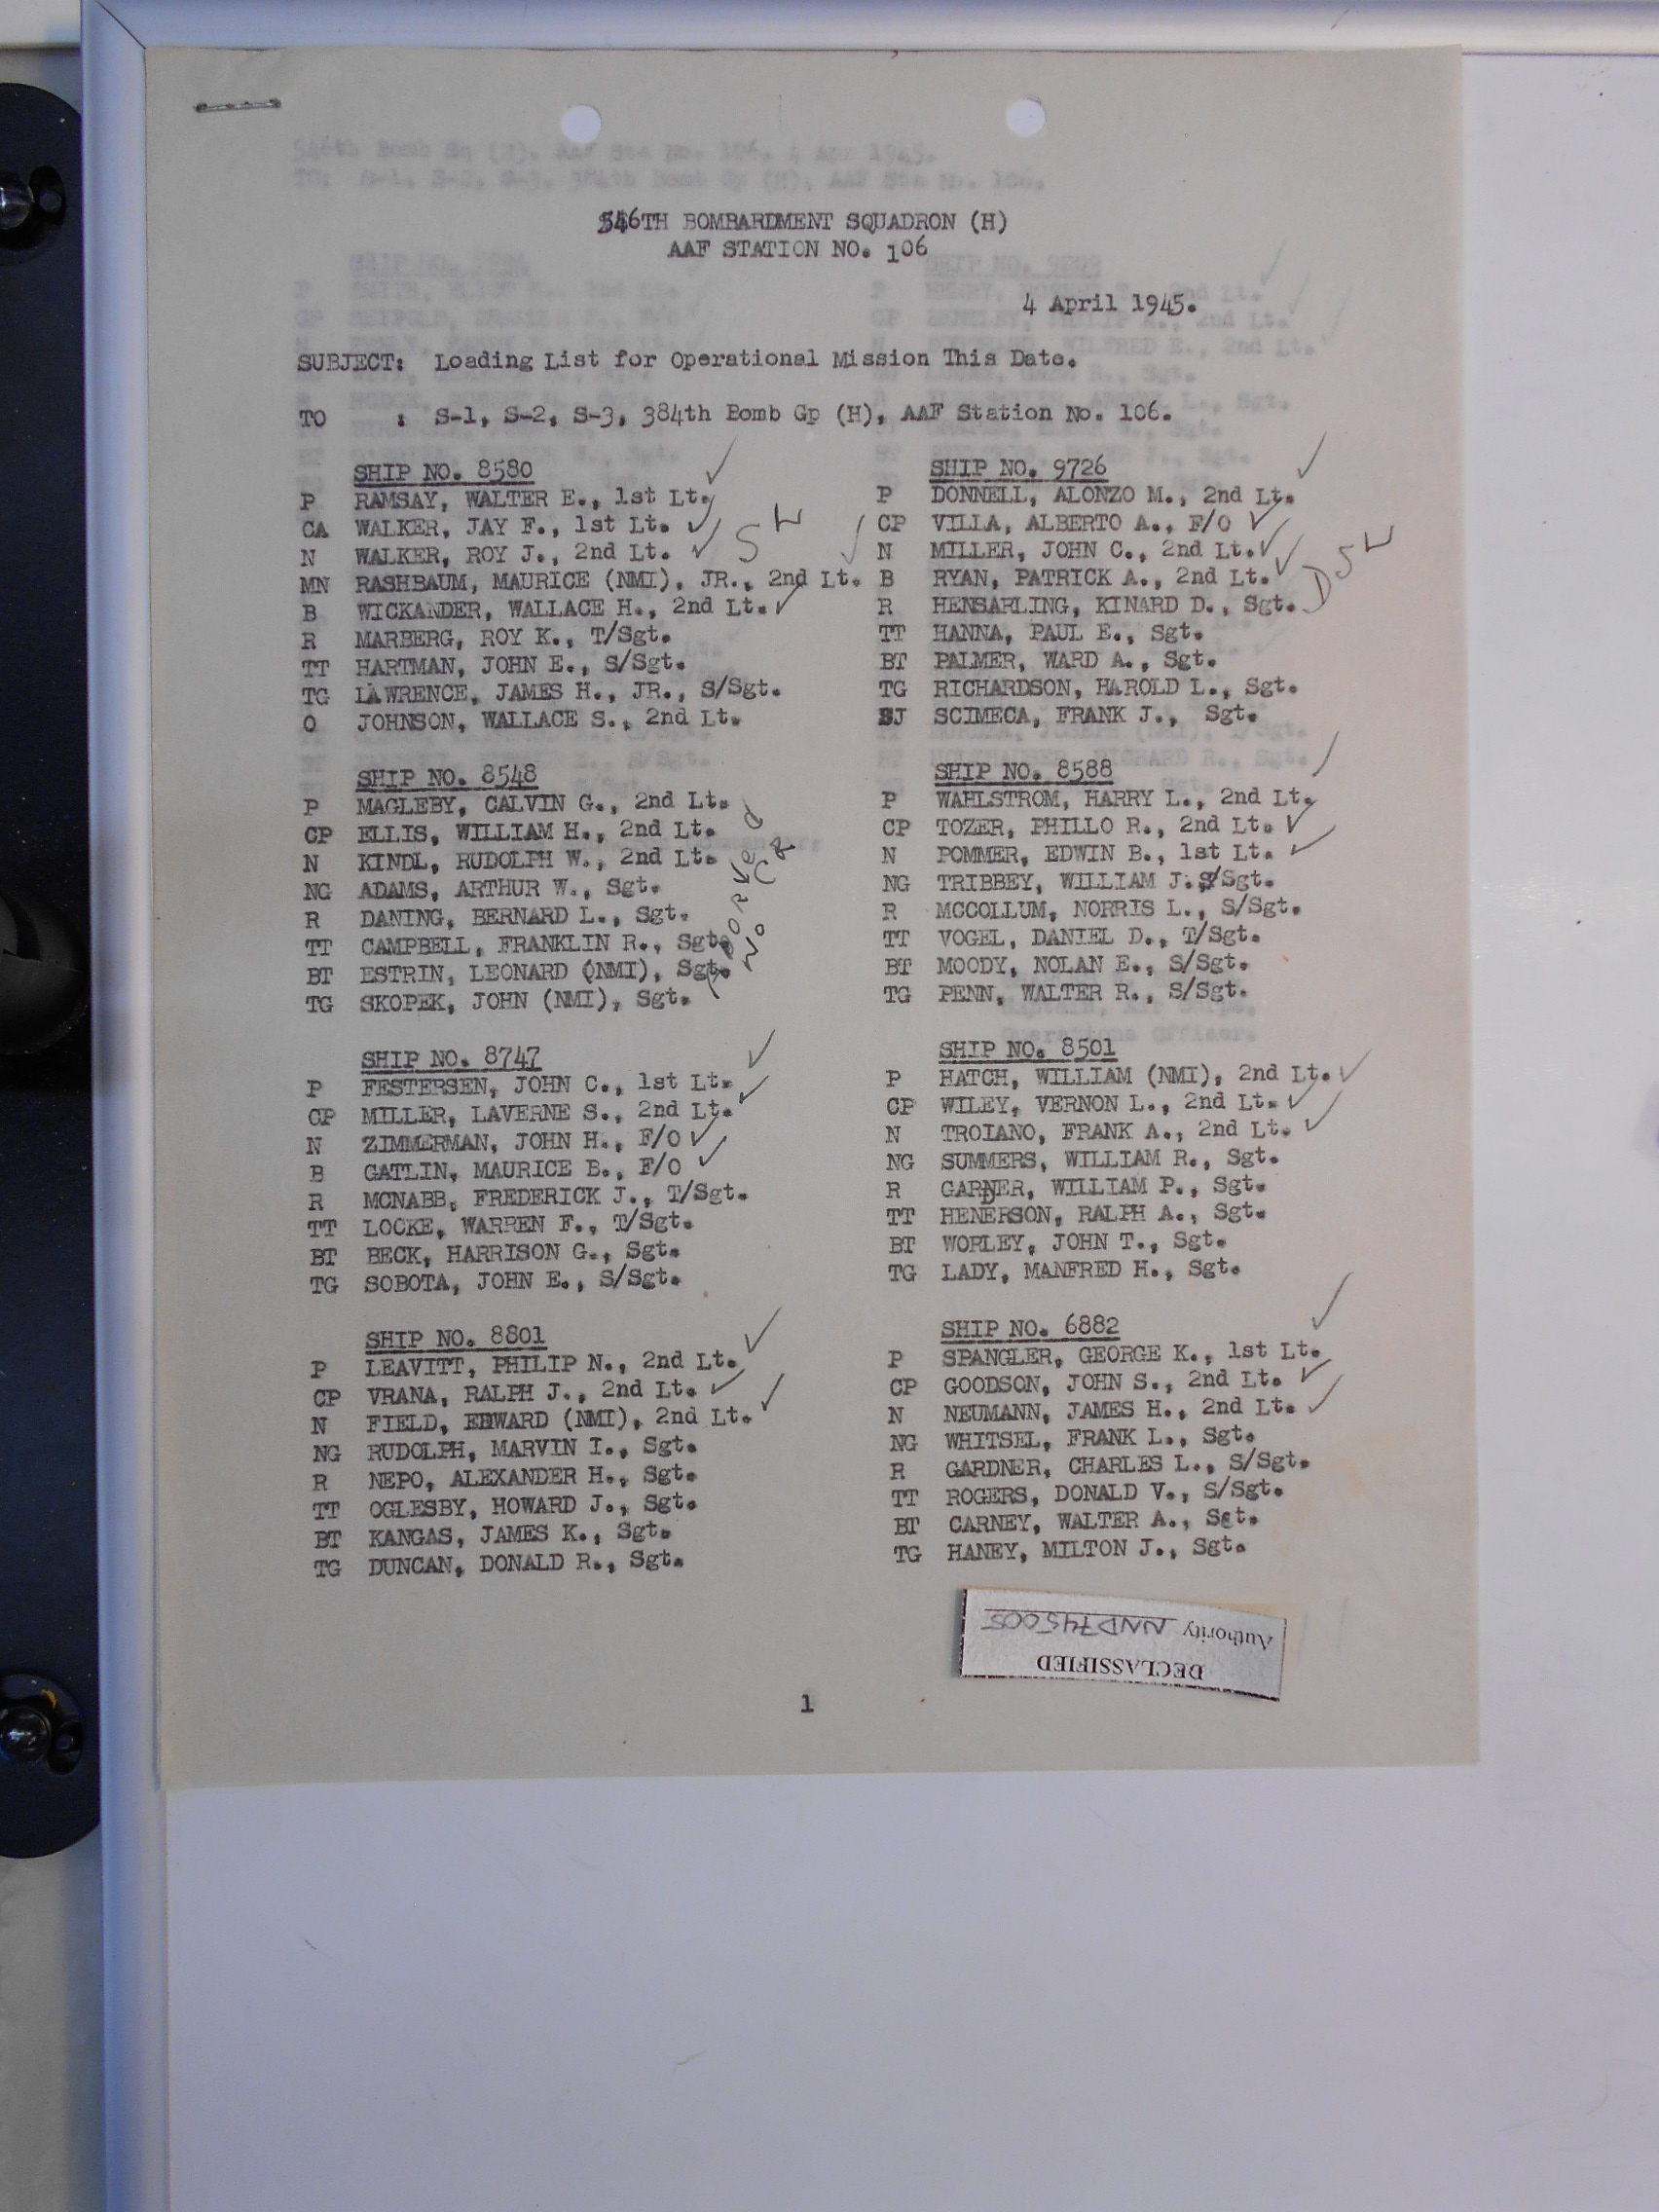 546TH BOMBARDMENT SQUADRON (H)
AAF STATION NO. 106
4 April 1945.
SUBJECT: Loading List for Operational Mission This Date.
TO : S-1, S-2, S-3, 384th Bomb Gp (H), AAF Station No. 106.
SHIP NO. 8580
P RAMSAY, WALTER E., 1st Lt.
CA WALKER, JAY F., 1st Lt.
N WALKER, ROY J., 2nd Lt.
MN RASHBAUM, MAURICE (NMI), JR., 2nd Lt.
B WICKANDER, WALLACE H., 2nd Lt.
R MARBERG, ROY K., T/Sgt.
TT HARTMAN, JOHN E., S/Sgt.
TG LAWRENCE, JAMES H., JR., S/Sgt.
O JOHNSON, WALLACE S., 2nd Lt.
SHIP NO. 8548
P MAGLEBY, CALVIN G., 2nd Lt.
CP ELLIS, WILLIAM H., 2nd Lt.
N KINDL, RUDOLPH W., 2nd Lt.
NG ADAMS, ARTHUR W., Sgt.
R DANING, BERNARD L., Sgt.
TT CAMPBELL, FRANKLIN R., Sgt.
BT ESTRIN, LEONARD (NMI), Sgt.
TG SKOPEK, JOHN (NMI), Sgt.
SHIP NO. 8747
P FESTERSEN, JOHN C., 1st Lt.
CP MILLER, LAVERNE S., 2nd Lt.
N ZIMMERMAN, JOHN H., F/O
B GATLIN, MAURICE B., F/O
R MCNABB, FREDERICK J., T/Sgt.
TT LOCKE, WARREN F., T/Sgt.
BT BECK, HARRISON G., Sgt.
TG SOBOTA, JOHN E., S/Sgt.
SHIP NO. 8801
P LEAVITT, PHILIP N., 2nd Lt.
CP VRANA, RALPH J., 2nd Lt.
N FIELD, EDWARD (NMI), 2nd Lt.
NG RUDOLPH, MARVIN I., Sgt.
R NEPO, ALEXANDER H., Sgt.
TT OGLESBY, HOWARD J., Sgt.
BT KANGAS, JAMES K., Sgt.
TG DUNCAN, DONALD R., Sgt.
SHIP NO. 9726
P DONNELL, ALONZO M., 2nd Lt.
CP VILLA, ALBERTO A., F/O
N MILLER, JOHN C., 2nd Lt.
B RYAN, PATRICK A., 2nd Lt.
R HENSARLING, KINARD D., Sgt.
TT HANNA, PAUL E., Sgt.
BT PALMER, WARD A., Sgt.
TG RICHARDSON, HAROLD L., Sgt.
SJ SCIMECA, FRANK J., Sgt.
SHIP NO. 8588
P WAHLSTROM, HARRY L., 2nd Lt.
CP TOZER, PHILLO R., 2nd Lt.
N POMMER, EDWIN B., 1st Lt.
NG TRIBBEY, WILLIAM J. S/Sgt.
R MCCOLLUM, NORRIS L., S/Sgt.
TT VOGEL, DANIEL D., T/Sgt.
BT MOODY, NOLAN E., S/Sgt.
TG PENN, WALTER R., S/Sgt.
SHIP NO. 8501
P HATCH, WILLIAM (NMI), 2nd Lt.
CP WILEY, VERNON L., 2nd Lt.
N TROIANO, FRANK A., 2nd Lt.
NG SUMMERS, WILLIAM R., Sgt.
R GARNER, WILLIAM P., Sgt.
TT HENDERSON, RALPH A., Sgt.
BT WORLEY, JOHN T., Sgt.
TG LADY, MANFRED H., Sgt.
SHIP NO. 6882
P SPANGLER, GEORGE K., 1st Lt.
CP GOODSON, JOHN S., 2nd Lt.
N NEUMANN, JAMES H., 2nd Lt.
NG WHITSEL, FRANK L., Sgt.
R GARDNER, CHARLES L., S/Sgt.
TT ROGERS, DONALD V., S/Sgt.
BT CARNEY, WALTER A., Sgt.
TG HANEY, MILTON J., Sgt.
DECLASSIFIED
Authority NND745005
1